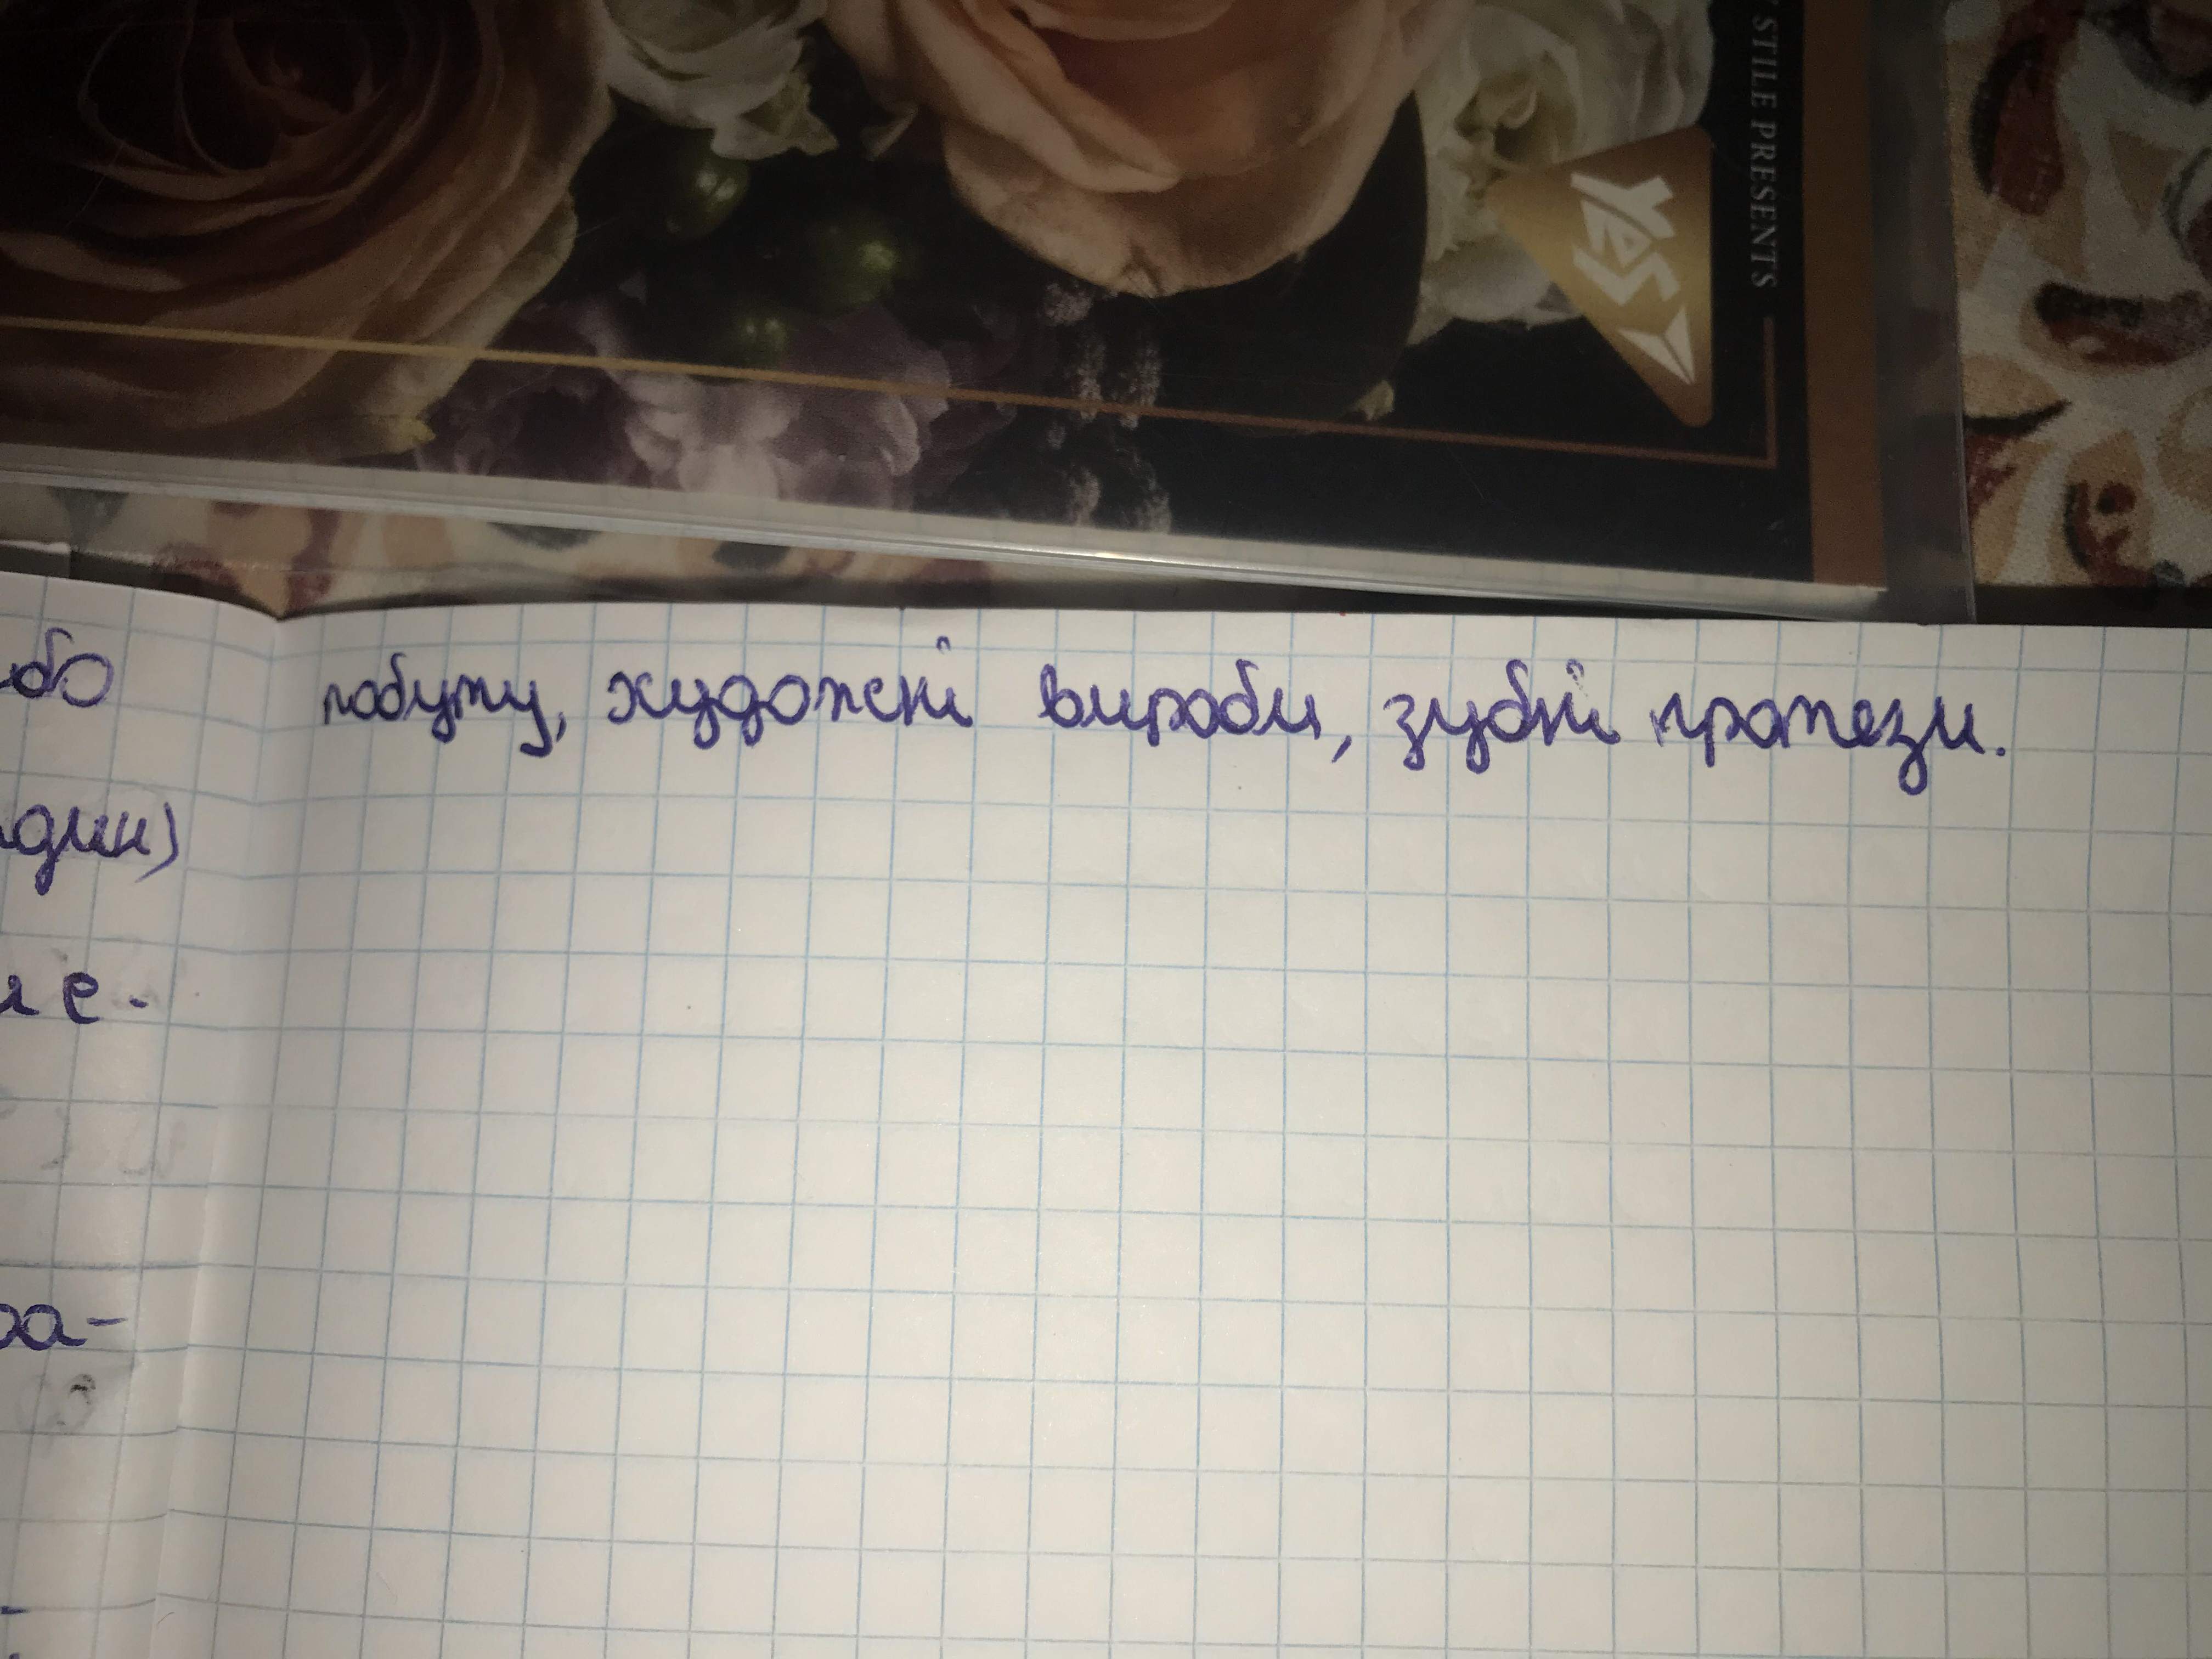 STILE PRESENTS
YES
побуту, художні вироби, зубні протези.